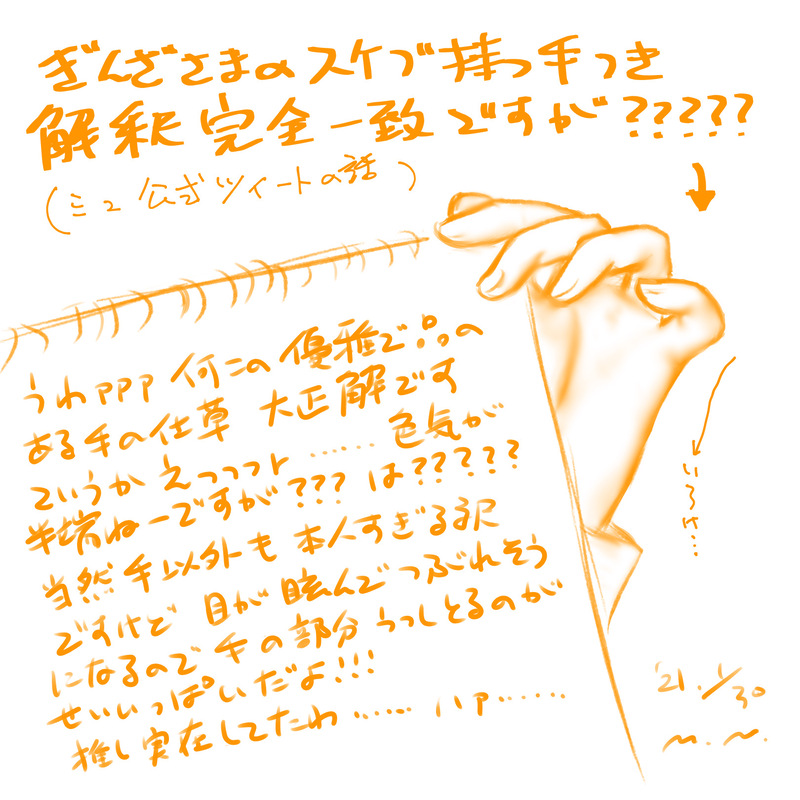 ぎんざさまのスケブ持つ手つき
解釈完全一致ですが?????
(ミュ公式ツイートの話)
うわァァァ何この優雅で品の
ある手の仕草 大正解です
というかえっっっト……色気が
半端ねーですが??? は?????
当然手以外も本人すぎる訳
ですけど 目が眩んでつぶれそう
になるので手の部分うつしとるのが
せいいっぱいだよ!!!
推し実在してたわ…… ハァ……
いろけ…
'21.1/30
m.n.